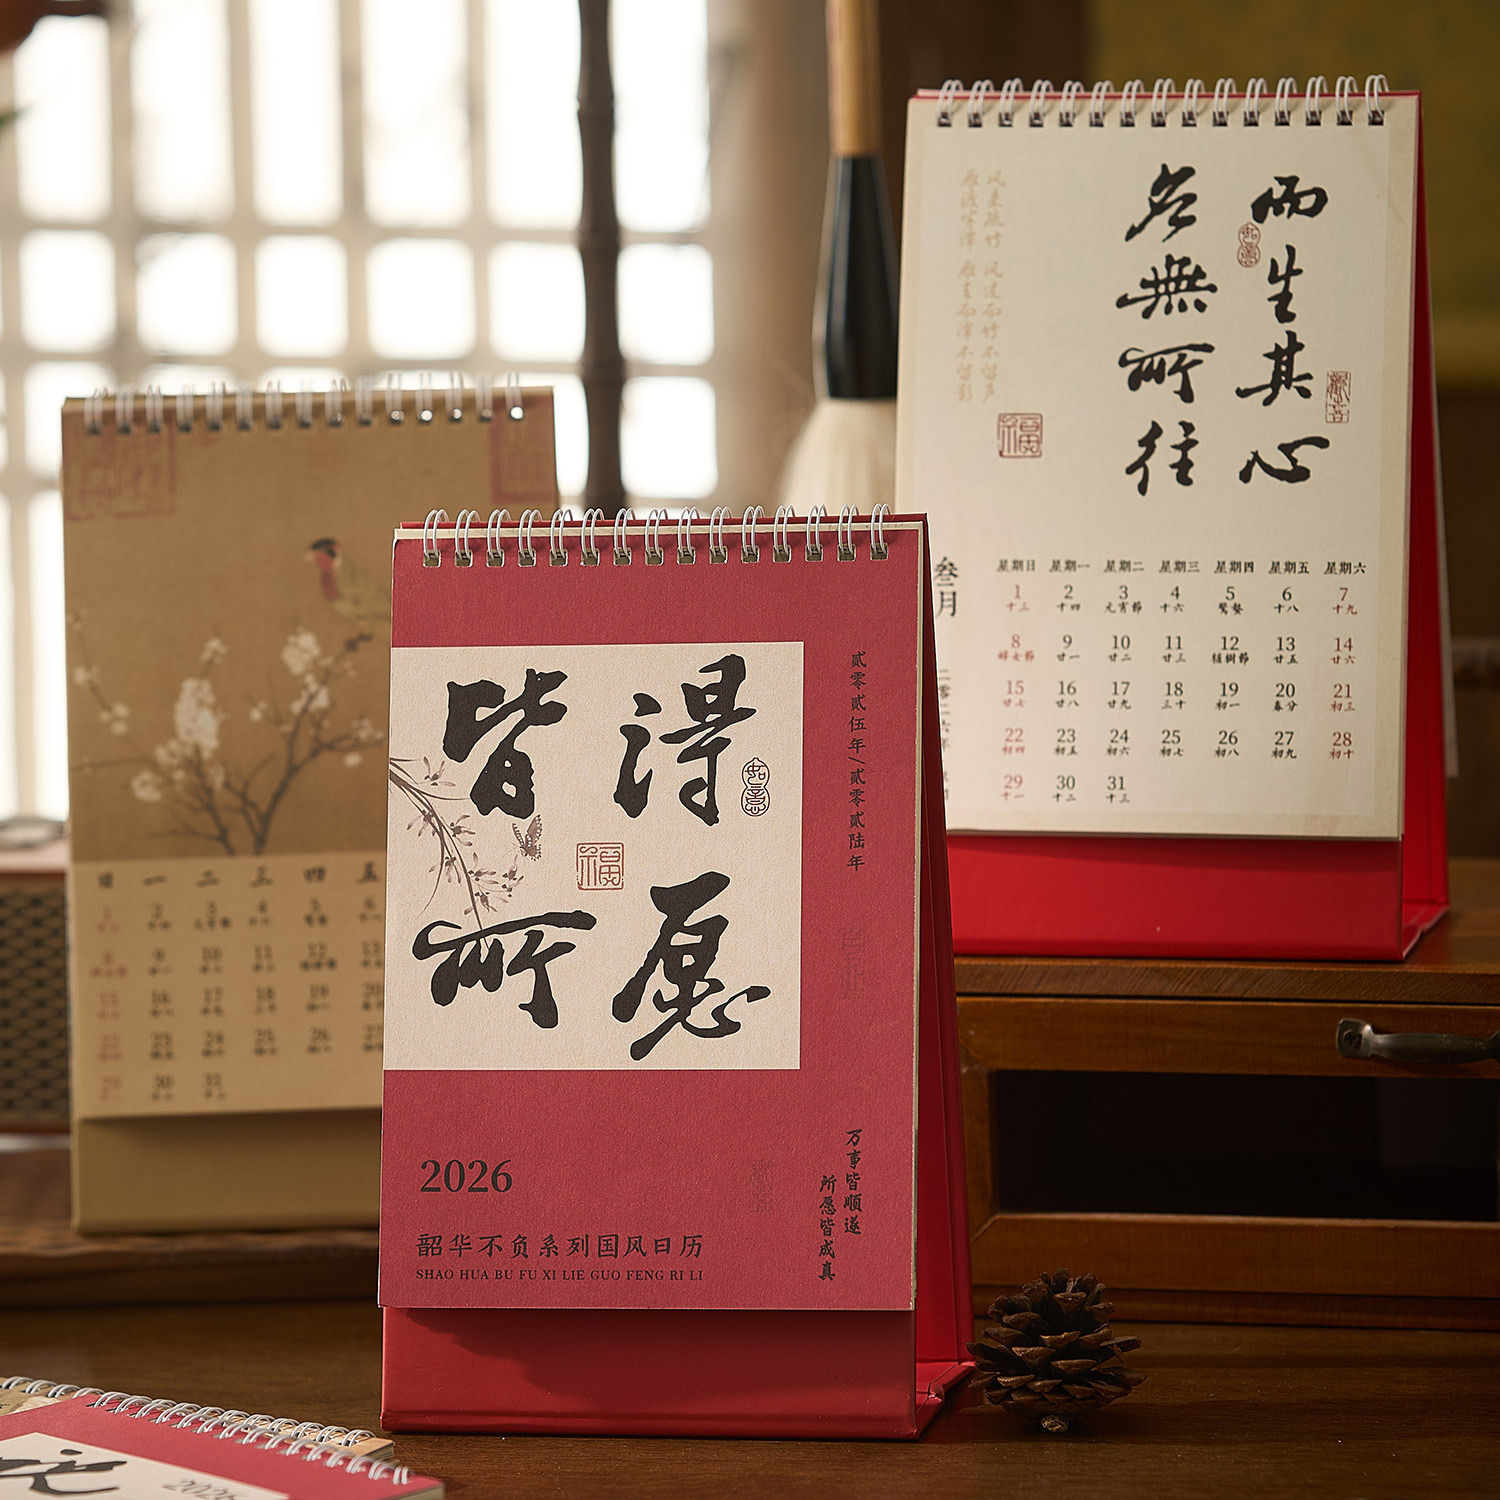 皆得
所愿
如意
福
贰零贰伍年/贰零贰陆年
万事皆顺遂
所愿皆成真
2026
韶华不负系列国风日历
SHAO HUA BU FU XI LIE GUO FENG RI LI
应無所往
而生其心
如意
福
风来疏竹 风过而竹不留声
雁渡寒潭 雁去而潭不留影
叁月
星期日 星期一 星期二 星期三 星期四 星期五 星期六
1 2 3 4 5 6 7
十三 十四 元宵節 十六 驚蟄 十八 十九
8 9 10 11 12 13 14
婦女節 廿一 廿二 廿三 植樹節 廿五 廿六
15 16 17 18 19 20 21
廿七 廿八 廿九 三十 初一 春分 初三
22 23 24 25 26 27 28
初四 初五 初六 初七 初八 初九 初十
29 30 31
十一 十二 十三
一 二 三 四 五
1 2 3 4 5 6
8 9 10 11 12 13
15 16 17 18 19 20
22 23 24 25 26 27
29 30 31
2026